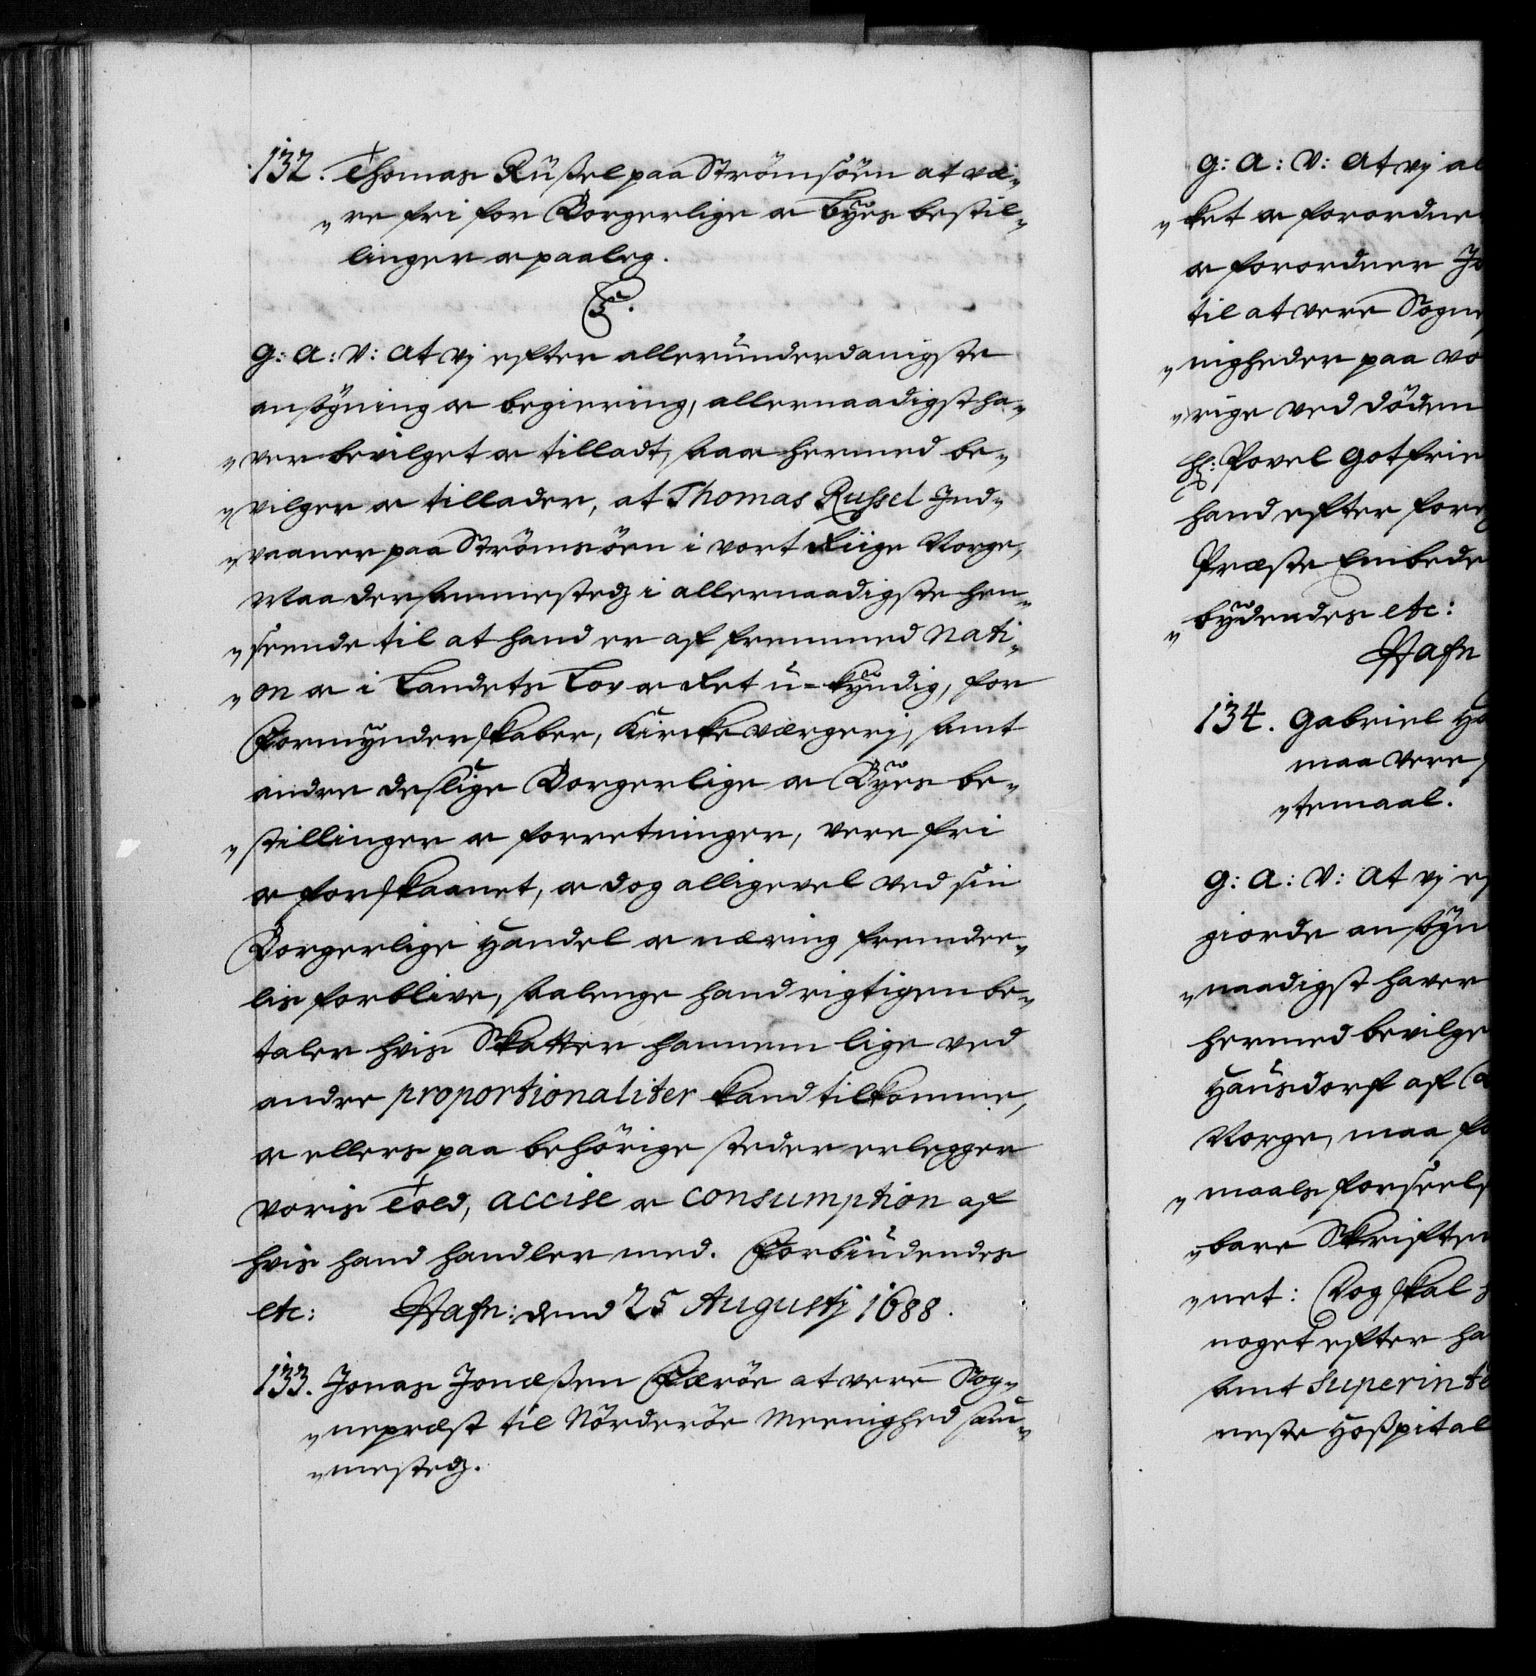 132. Thomas Rüssel paa Strömsöen at væ-
"re fri for Borgerlige oc Byes bestil-
linger oc paaleg.
C5.
G: A: V: At vj efter alleründerdanigste
ansögning oc begiering, allernaadigst ha-
"ver bevilget oc tilladt, saa oc hermed be-
"vilger oc tillader, at Thomas Russel Ind-
"vaaner paa Strömsöen i vort Riige Norge,
Maa dersammestedz i allernaadigste hen-
"seende til at hand er af fremmed Nati-
"on oc i Landets Lov oc Ret ü-kyndig, for
Formynderskaber, Kirckeværgerj, samt
andre deslige Borgerlige oc Byes be-
"stillinger oc forretninger, vere fri
oc forskaanet, oc dog alligevel ved sin
Borgerlige Handel oc næring fremdee-
lis forblive, saalenge hand rigtigen be-
taler hvis Skatter hannem lige ved
andre proportionaliter kand tilkomme,
oc ellers paa behörige steder erlegger
voris Told, accise oc consumption af
hvis hand handler med. Forbiüdendes
etc: Hafn: dend 25 Augustj 1688.
133. Jonas Jonæssen Færöe at vere Sog-
"nepræst til Nörderöe Meenighed sam-
"mestedz.
G: A: V: At vj al
"ket oc forordne
oc forordner Jo
til at vere Sogne
"nigheder paa vo
"rige ved döden
Hr: Povel Gotfrie
hand efter fore
Præste Embede
"bydendes etc:
Hafn
134. Gabriel Ha
maa vere
"temaal.
G: A: V: At vj ef
giorde ansögn
"naadigst haver
hermed bevilge
Haüsdorf af
Norge, maa fo
"maals forseels
"bare Skriften
"net: Dog skal
noget efter ha
samt Superinte
neste Hospital